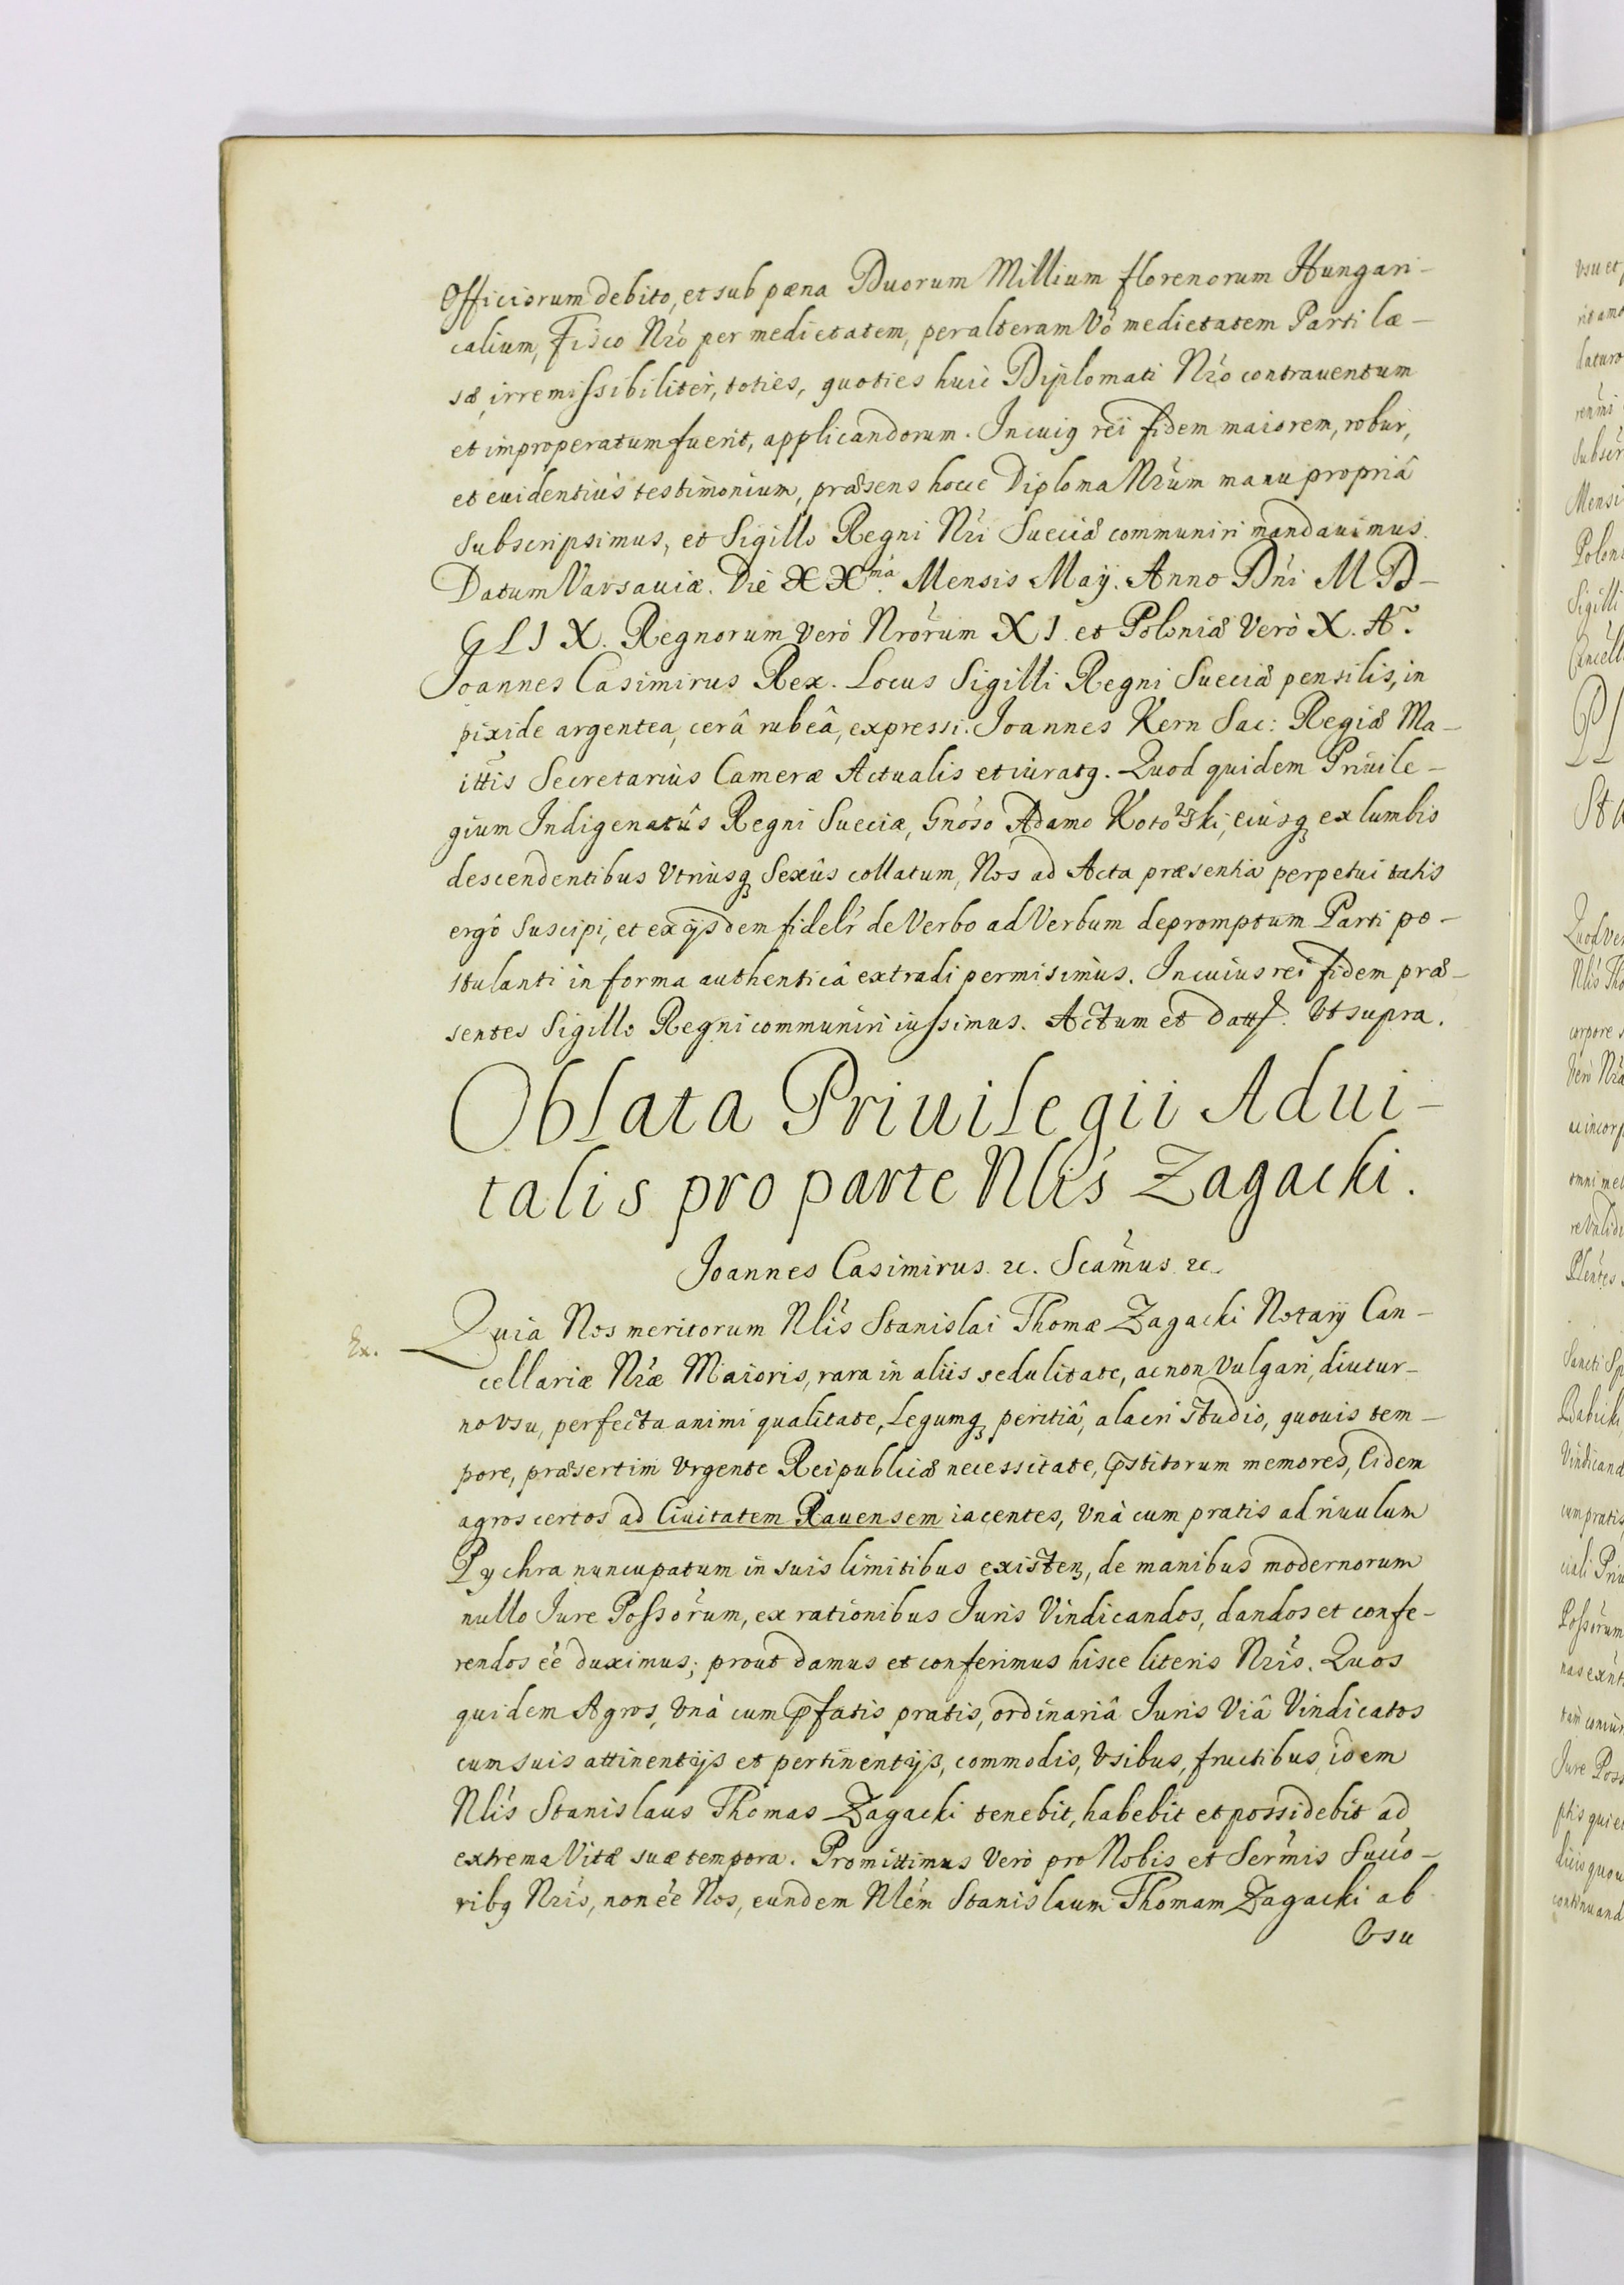 Officiorum debito, et sub pœna Duorum Millium florenorum Hungari-
calium, Fisco Nró per medietatem, per alteram Vó medietatem Parti læ-
sæ, irremissibiliter, toties, quoties huic Diplomati Nró contrauentum
et improperatum fuerit, applicandorum. In cuig rei fidem maiorem, robur,
et euidentius testimonium, præsens hocce Diploma Nrúm manu propriâ
subscripsimus, et Sigillo Regni Nrí Sueciæ communiri mandauimus.
Datum Varsauiæ. Die XXma. Mensis Maÿ. Anno Dńi MD-
CLIX. Regnorum verò Nrórum XI. et Poloniæ Verò X. Aº.
Joannes Casimirus Rex. Locus Sigilli Regni Sueciæ pensilis, in
pixide argentea, cerâ rubeâ, expressi. Joannes Kern Sac: Regiæ Ma-
ittis Secretarius Cameræ Actualis et iuratg. Quod quidem Priuile-
gium Indigenatûs Regni Sueciæ, Gnóso Adamo Kotowski, eiusq ex lumbis
descendentibus Vtriusq Sexûs collatum, Nos ad Acta præsentia perpetuitatis
ergô suscipi, et ex ijsdem fidelr de Verbo ad Verbum depromptum Parti po-
stulanti in forma authenticâ extradi permisimus. In cuius rei fidem præ-
sentes Sigillo Regni communiri iussimus. Actum et Datt. Vt supra.
Oblata Priuilegii Adui-
talis pro parte Nlis Zagacki.
Joannes Casimirus. &c. Scámus &c.
Ex. Quia Nos meritorum Nlis Stanislai Thomæ Zagacki Notarÿ Can-
cellariæ Nræ Maioris, rara in aliis sedulitate, ac non vulgari, diutur-
no vsu, perfecta animi qualitate, Legumq peritiâ, alacri studio, quouis tem-
pore, præsertim Vrgente Reipublicæ necessitate, pstitorum memores, Eidem
agros certos ad Ciuitatem Rauensem iacentes, Vnà cum pratis ad riuulum
Pychra nuncupatum in suis limitibus existen, de manibus modernorum
nullo Jure Possórum, ex rationibus Juris Vindicandos, dandos et confe-
rendos eé duximus; prout damus et conferimus hisce literis Nris. Quos
quidem Agros, Vnà cum pfatis pratis, ordinariâ Juris Viâ Vindicatos
cum suis attinentijs et pertinentijs, commodis, Vsibus, fructibus, idem
Nlis Stanislaus Thomas Zagacki tenebit, habebit et possidebit ad
extrema Vitæ suæ tempora. Promittimus Verò pro Nobis et Sermis Succo-
ribg Nris, non eé Nos, eundem Nlém Stanislaum Thomam Zagacki ab
Vsu